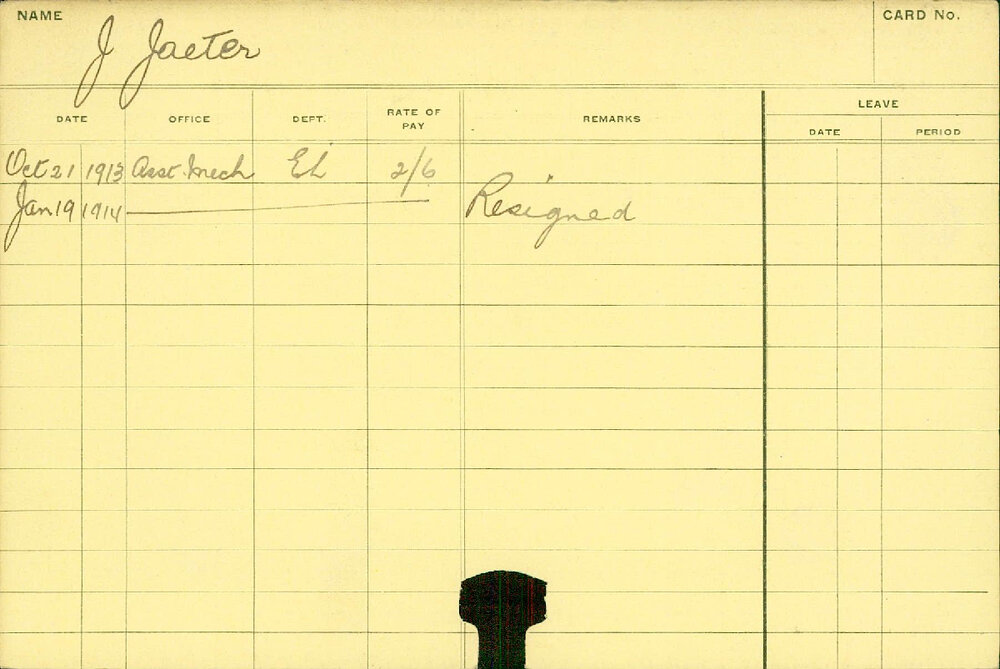 NAME
J Jaeter
CARD No.
DATE OFFICE DEPT. RATE OF PAY REMARKS LEAVE
DATE PERIOD
Oct 21 1913 Asst. Mech El 2/6
Jan 19 1914 Resigned